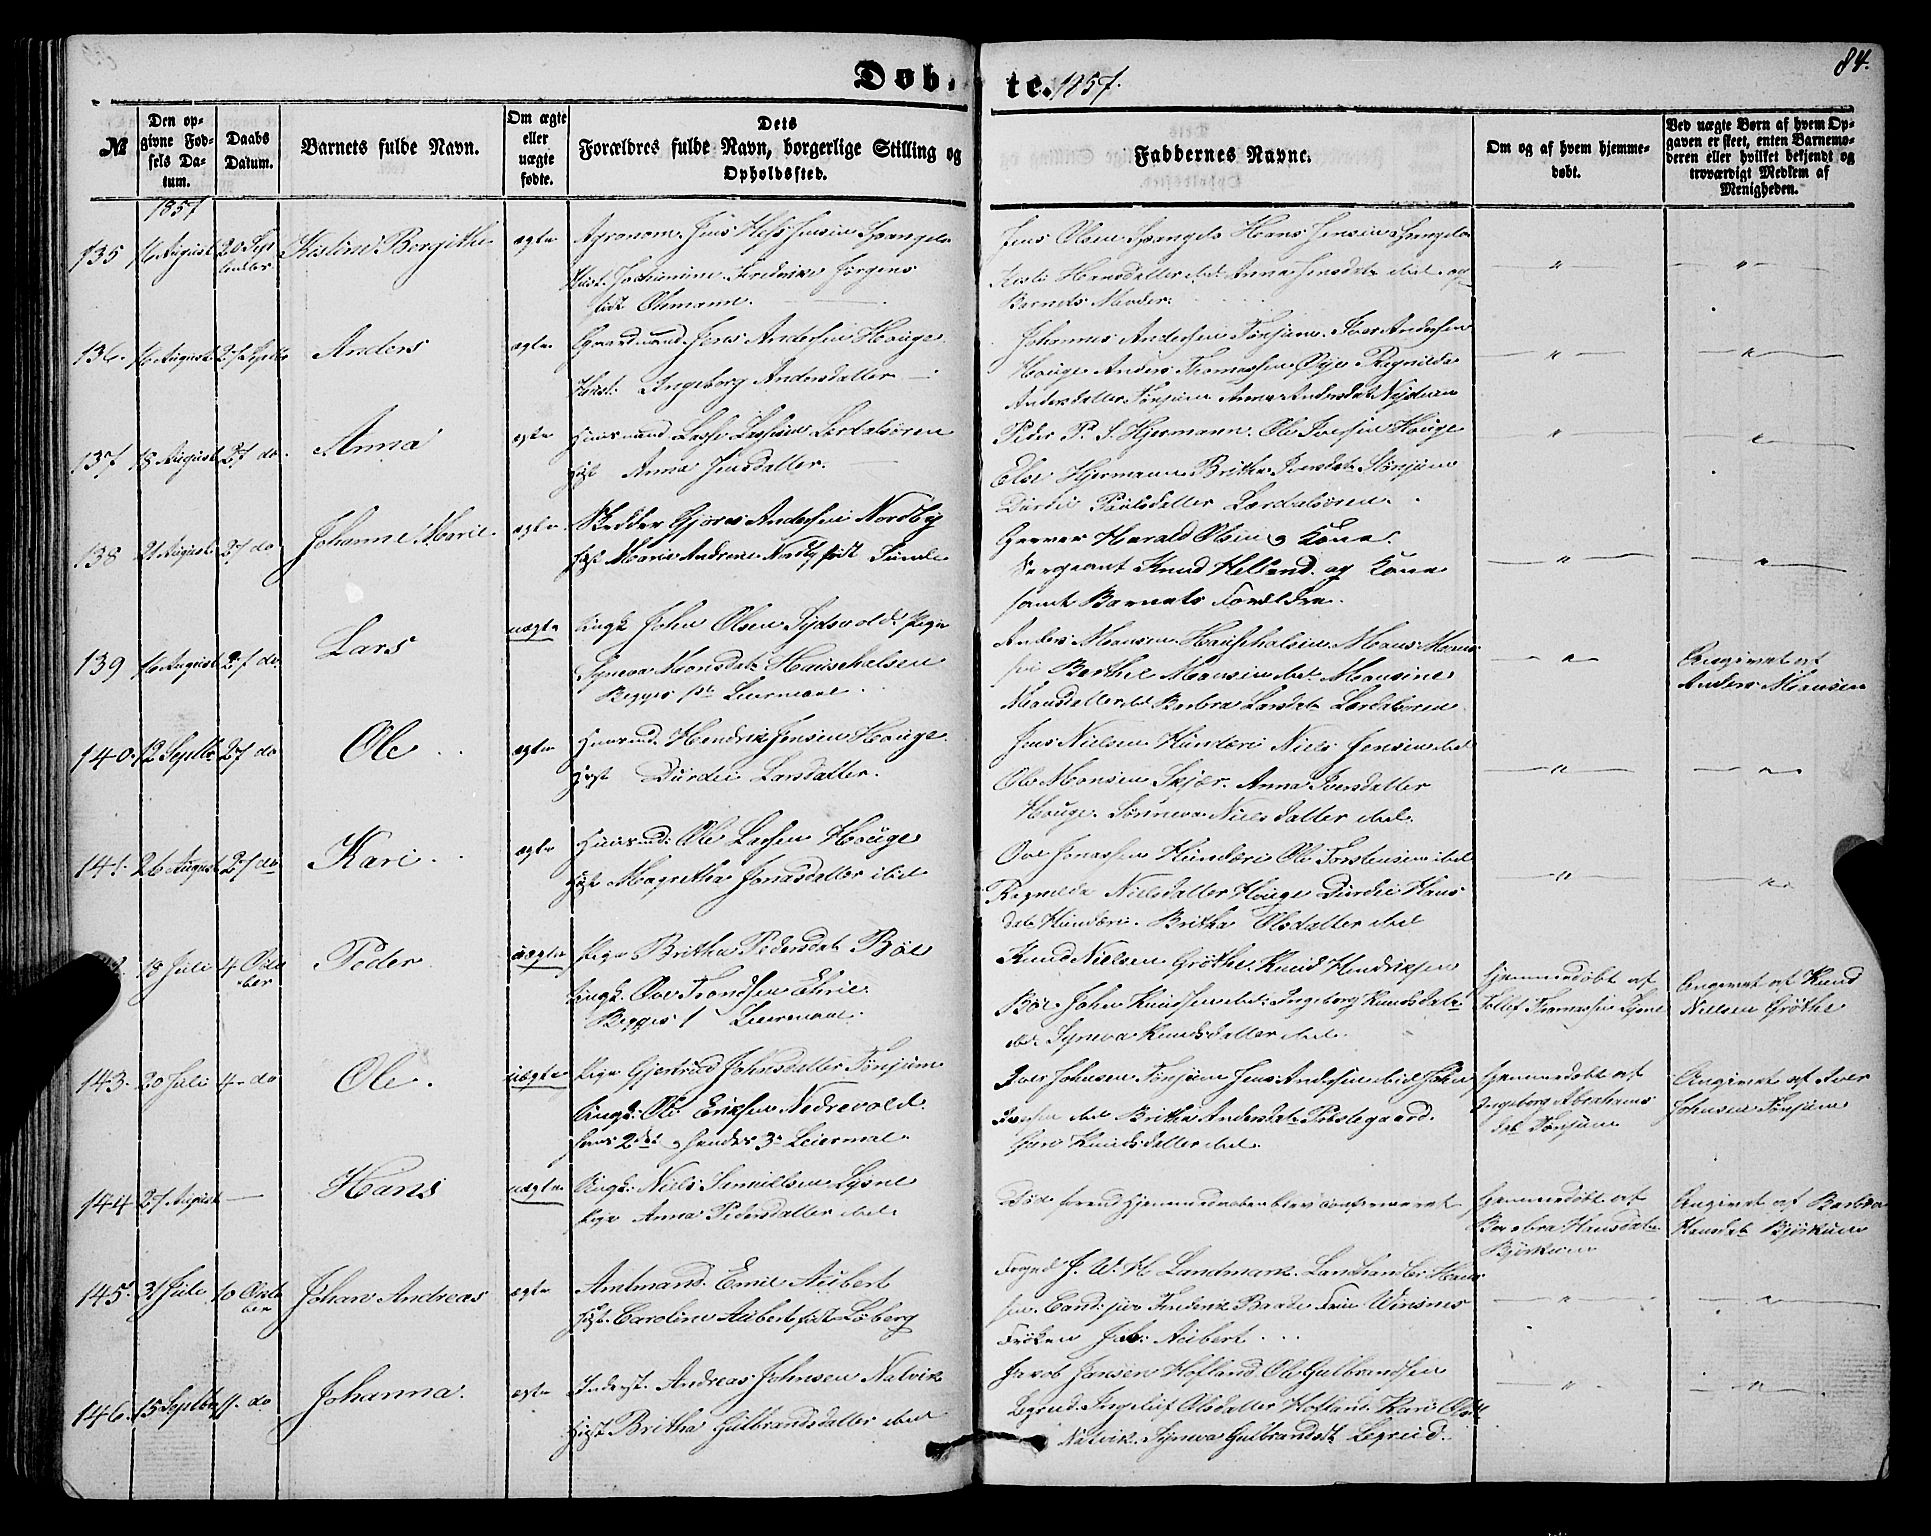 Døbte. 1857.
84.
№
Den op-
givne Fød-
sels Da-
tum.
Daabs
Datum.
Barnets fulde Navn.
Om ægte
eller
uægte
fødte.
Dets
Forældres fulde Navn, borgerlige Stilling og
Opholdssted.
Faddernes Navne.
Om og af hvem hjemme-
døbt.
Ved uægte Børn af hvem Op-
gaven er skeet, enten Barnemo-
deren eller hvilket bekjendt og
troværdigt Medlem af
Menigheden.
1857
135 16 August 20 Sep
tember
Kristine Borgithe
ægte
Agronom Jens
Hust. Jochumine Fredrike Jørgens
født Ohmann.
Jens Olsen Spangelo Hans Jensen Spangelo
Hansdatter ibd. Anna Jensdat. ibid. og
Barnets Moder.
136. 16 August 27 Septbr
Anders
ægte
Gaardmand Jens Andersen Houge
Hust. Ingeborg Andersdatter
Johannes Andersen Tønjum. Iver Andersen
Houge Anders Thomassen Øye Ragnilda
Andersdatter Tønjum Anna Andersdat
137 18 August 27 do.
Anna
ægte
Huusmand Lasse Lassesen Lærdalsøren
Hust Anna Jensdatter.
Peder P. S. Hjermann. Ole Iversen Houge
Else Hjermann Britha Iversdat
Durdei Povlsdatter Lærdalsøren.
138 21 August 27 do
Johanne Marie.
ægte
Skredder Gjøres Andersen Nordby
Hust Marie Andrene Nordby født
Garver Harald Olsen og Kone.
Sergeant Knud Helland og Kone
samt Barnets Forældre.
139 16 August 27 do
Lars
uægte
Ungk. John Olsen Sydsvold. Pige
Synneva Monsdat. Hausehelsen
Begges 1ste Leiermaal
Anders Monsen Monse Mons
sen Barthe Monsen ibd. Monsine
Monsdatter ibd Barbra Larsdat Lærdalsøren
Angivet af
Anders Monsen
140. 12 Septbr 27 do
Ole
ægte
Huusmd. Hendrik Jensen Houge
Hust Durdei Larsdatter.
Jens Nielsen Hunderi Niels Jensen ibd
Ole Monsen Skjær. Anna Iversdatter
Houge. Sønneva Nielsdatter ibd.
141. 26 August 27 do
Kari
ægte
Huusmd: Ole Lassen Houge
Hust Magretha Jonasdatter ibid
Ove Jonassen Hunderi Ole Torstensen ibd
Ragnilda Nielsdatter Houge Durdei Hans
dat Hunderi. Britha Olsdatter ibd
18 Juli 4 Octo
ber
Peder
uægte
Pige Britha Pedersdat Böe
Ungk. Ove Trondsen
Begges 1 Leiermaal.
Knud Nielsen Grøthe. Knud Hendriksen
Böe. John Knudsen ibd: Ingeborg Knudsdat
ibd. Synneva Knudsdatter ibd
Hjemmedøbt af
Tollef Thomassen Lysne
Angivet af Knud
Nielsen Grøthe
143. 20 Juli 4 do
Ole.
uægte
Pige Gjertrud Johnsdatter Tönjum
Ungk: Ole Eriksen Nedrevold
hans 2det og hendes 3die Leiermal.
Iver Johnsen Tønjum Jens Andersen ibid John
Iversen ibd Britha Andersdat Præstegaard.
Guro Knudsdatter ibd.
Hjemmedøbt af
Ingeborg Abrahams
dat Tønjum
Angivet af Iver
Johnsen Tønjum
144 27 August —
Hans
uægte
Ungk: Niels Samuelsen Lysne
Pige Anna Pedersdatter ibd.
Døde førend Hjemmedaaben blev confirmeret
Hjemmedøbt af
Barbra Hansdat
Bjørkum
Angivet af Barbra
Hansdat Bjørkum
145. 31 Juli 10 Octo
ber
Johan Andreas
ægte
Amtmand Emil Aubert
Hust. Caroline Aubert født Løberg
Foged J. W. H. Landmark. Landhandler Hans
sen. Cand: jur Frederik Brade. Fru Winsnes
Frøken Jul: Aubert
146. 15 Septbr 11. do
Johanna.
ægte
Inderst. Andreas Johnsen Nalvik
Hust Britha Gulbrandsdatter ibd
Jacob Jansen Hofland. Ole Gulbrandsen
Legreid. Ingeleif Olsdatter Hofland. Kari Olsd
Nalvik. Synneva Gulbrandsdt Legreid.